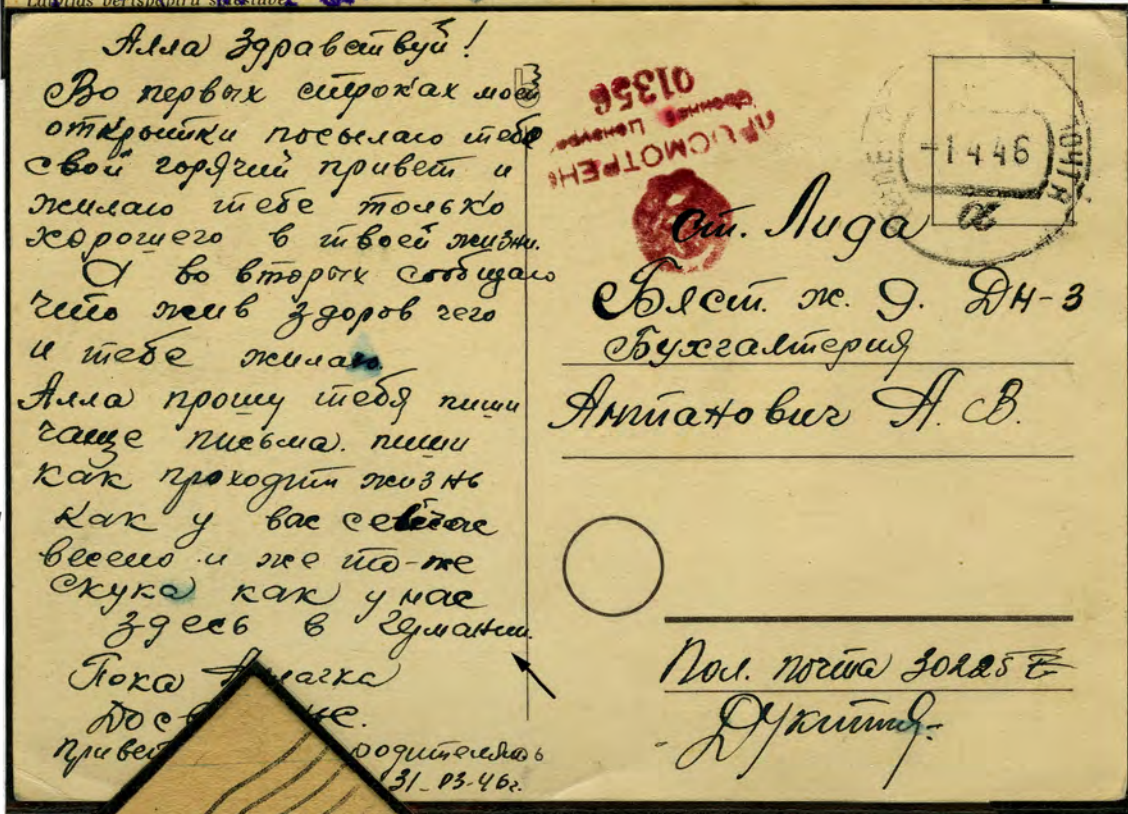 Алла Здравствуй!
Во первых строках моей
открытки посылаю тебе
свой горячий привет и
жилаю тебе только
хорошего в твоей жизни.
А во вторых сообщаю
что жив здоров чего
и тебе жилаю.
Алла прошу тебя пиши
чаще письма. пиши
как проходит жизнь
как у вас
весело и же то-же
скука как у нас
здесь в Германии.
Пока
Привет родителям
31-03-46г.
01356
Военной Цензурой
ПРОСМОТРЕНО
ПОЧТА
-1 4 46
ст. Лида
Б.Лст. ж. д. ДН-3
Бухгалтерия
Антанович А. В.
Пол. почта 30225